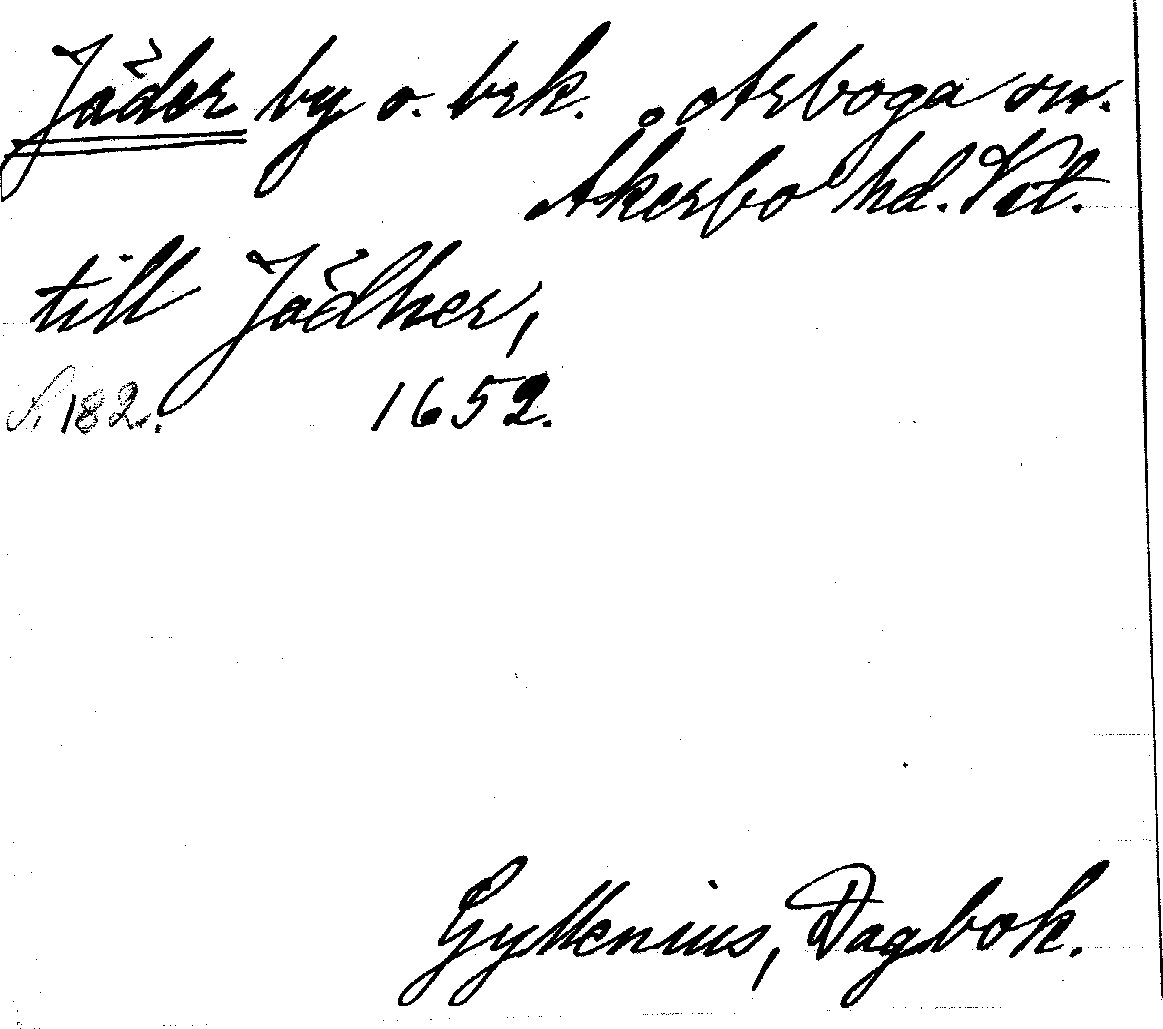 Jäder by o. brk. Arboga sn.
Åkerbo hd. Vstl.
till Jädher,
S. 182. 1652.
Gyllenius, Dagbok.